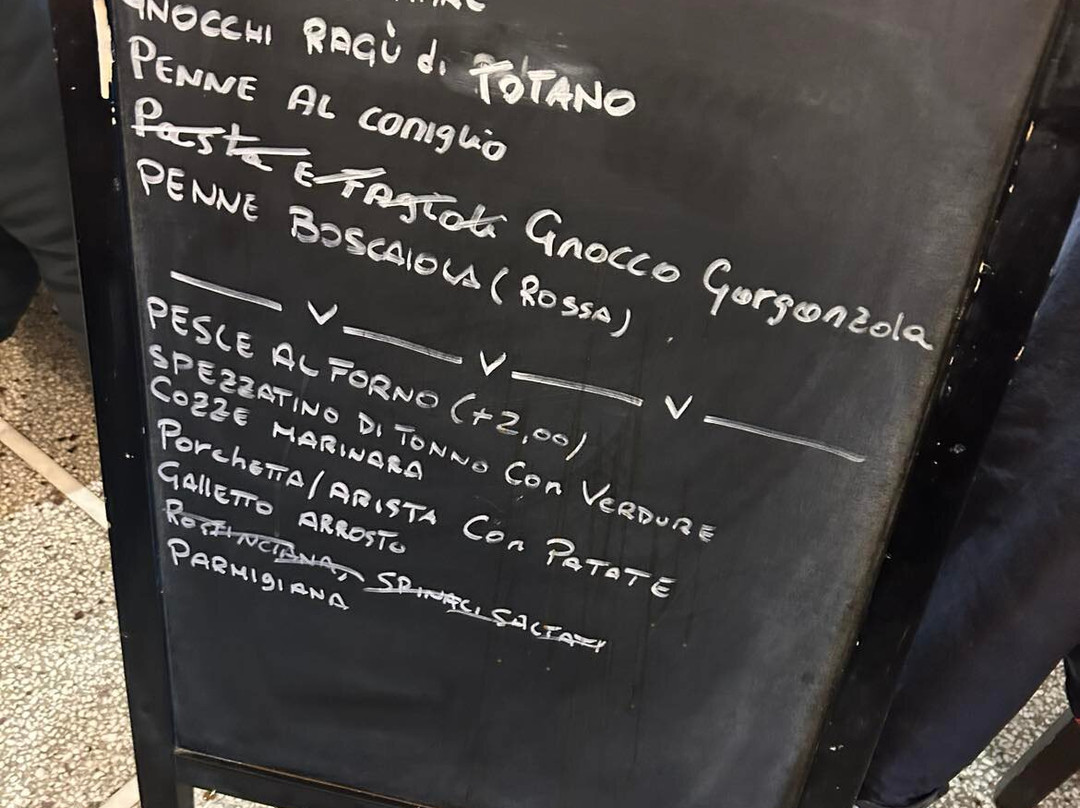 GNOCCHI RAGÙ di TOTANO
PENNE AL coniglio
Pasta E FAGIOLI Gnocco Gorgonzola
PENNE BOSCAIOLA (ROSSA)
V V V
PESCE AL FORNO (+2,00)
SPEZZATINO DI TONNO Con VERDURE
COZZE MARINARA
PORCHETTA/ARISTA Con PATATE
GALLETTO ARROSTO
ROSTINCIANA, SPINACI SALTATI
PARMIGIANA